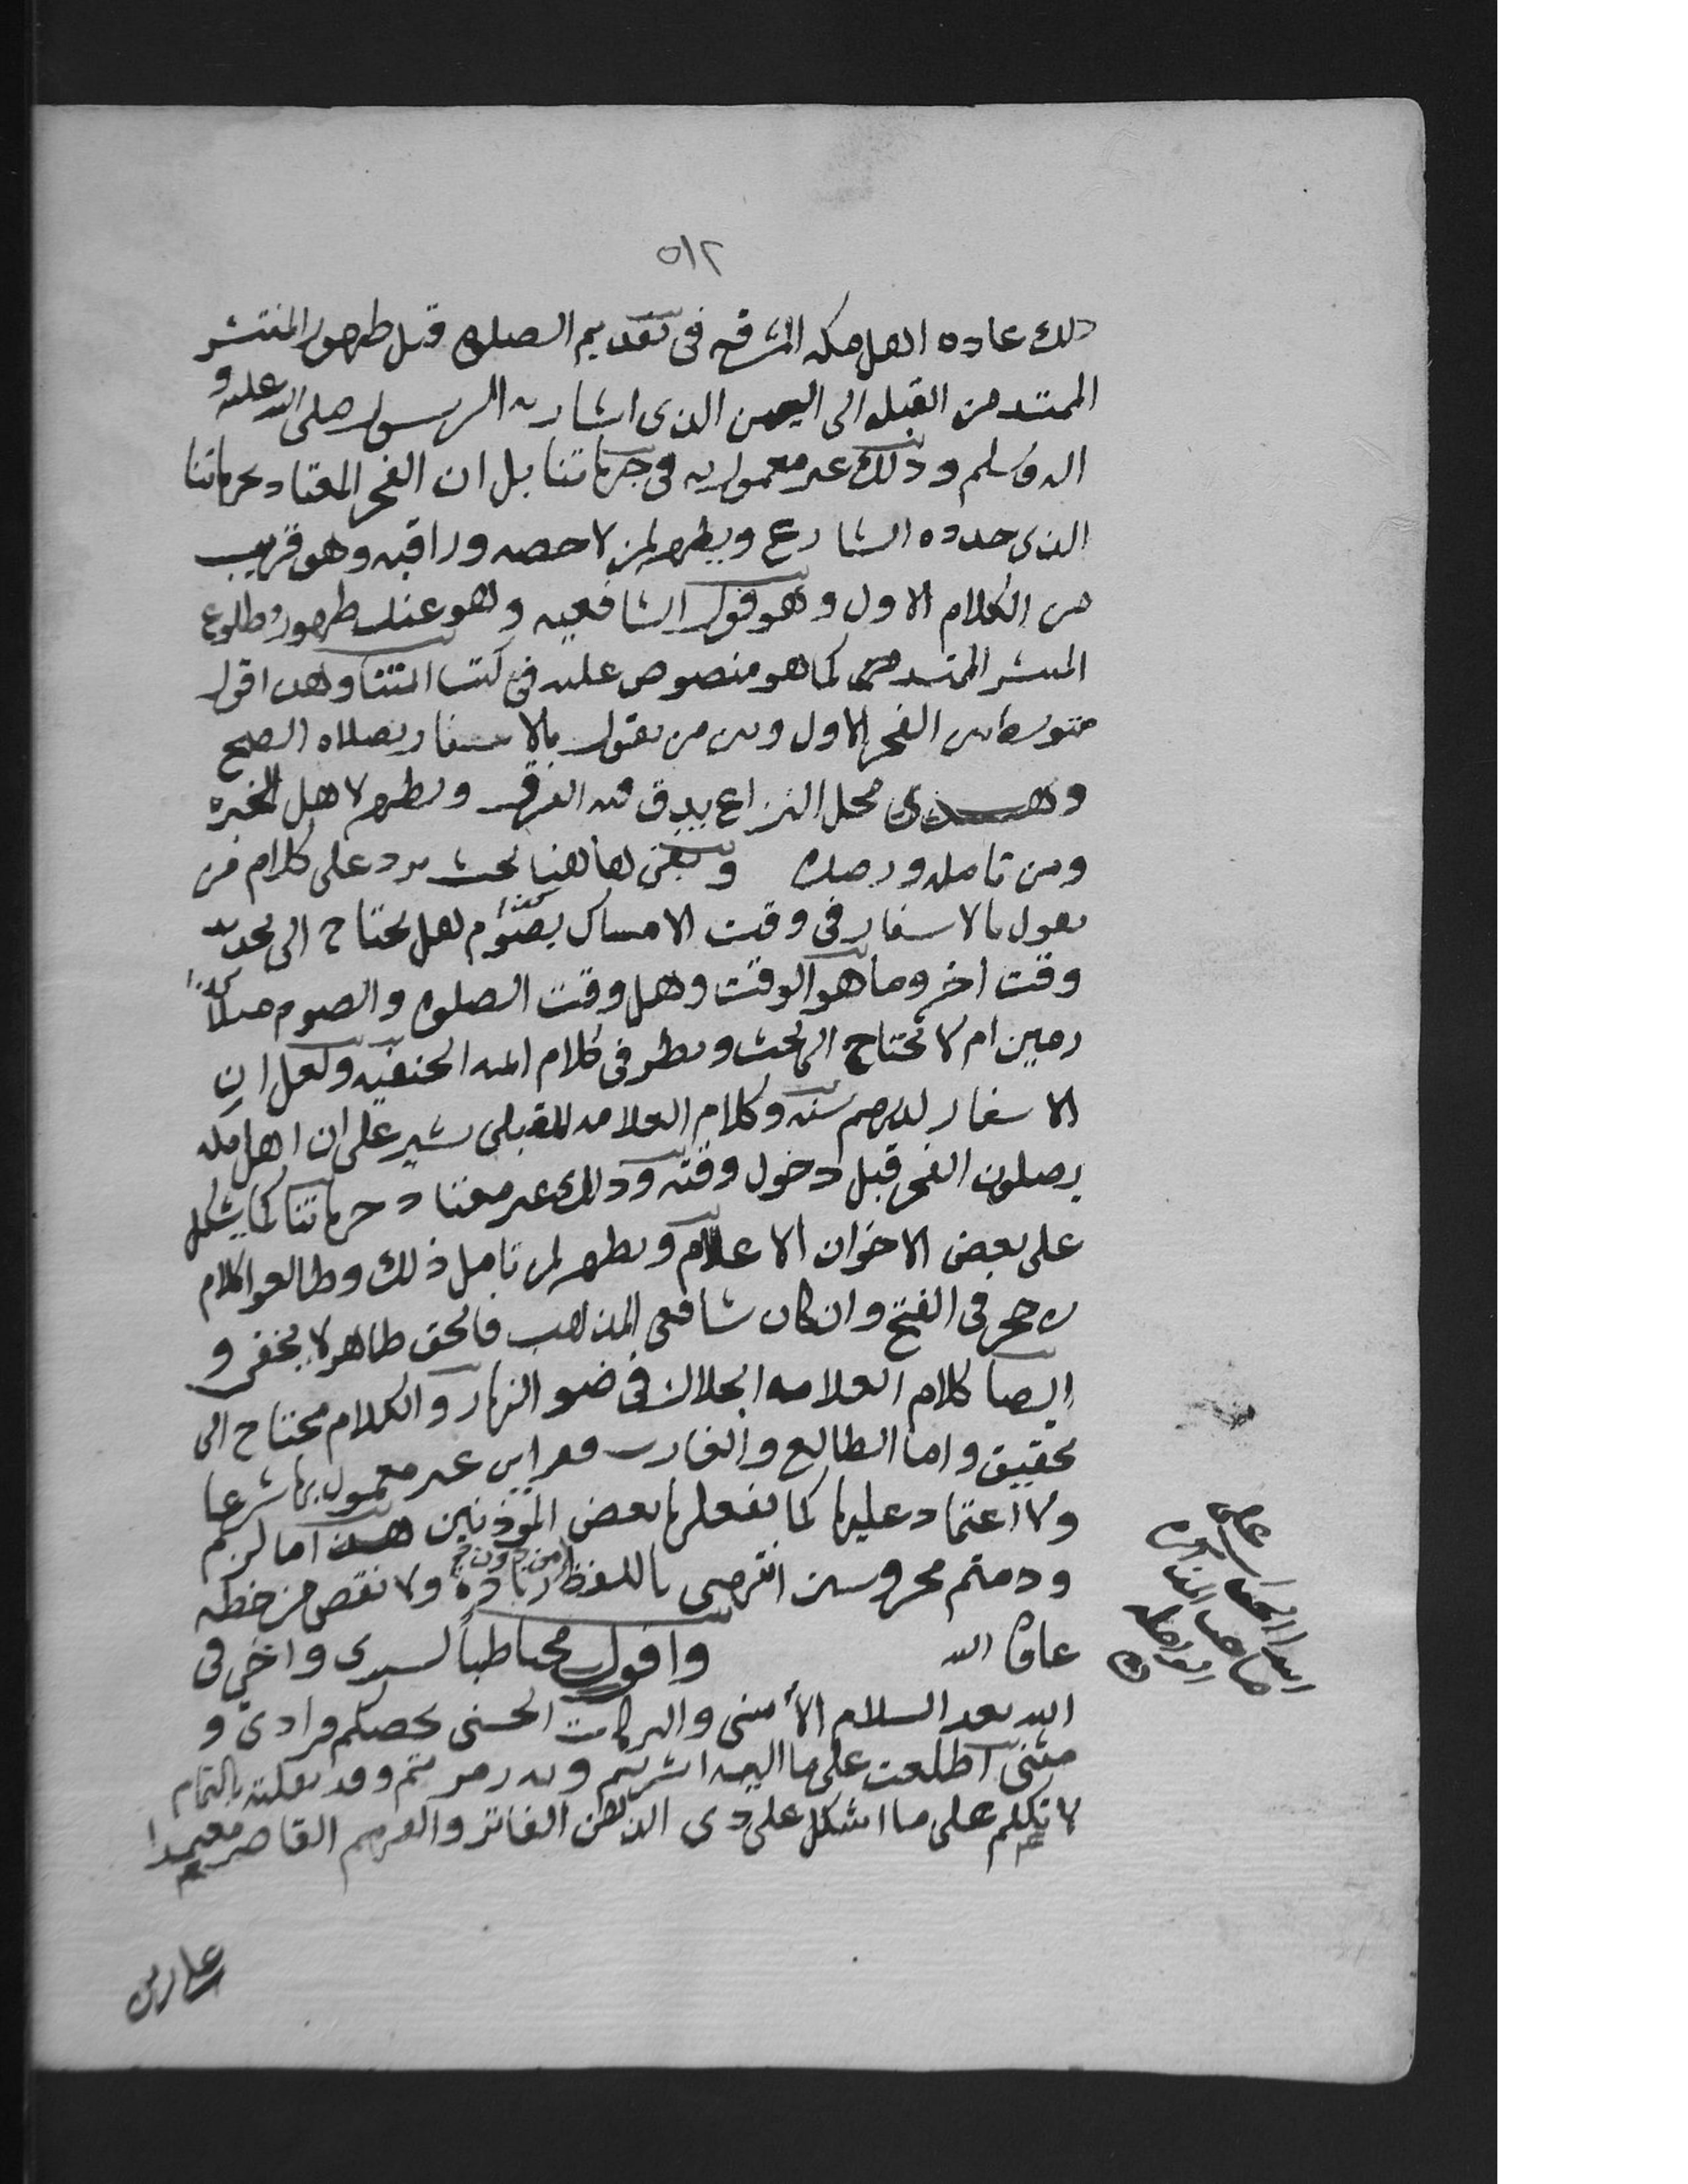 ٥١٢
ذلك عاده اهل مكه المشرفه فى تقديم الصلوه قبل ظهور المنتشر
الممتد من القبله الى اليمن الذى اشار به الرسول صلى الله عليه و
اله وسلم وذلك غير معمول به فى جهاتنا بل ان الفجر المعتاد بجهاتنا
الذى حدده الشارع ويظهر لمن لاحضه وراقبه وهو قريب
من الكلام الاول وهو قول الشافعيه وهو عند ظهور وطلوع
المنتشر الممتد كما هو منصوص عليه فى كتب ائمتنا وهذا قول
متوسط بين الفجر الاول وبين من يقول بالاسفار بصلاه الصبح
وهذى محل النزاع يدق فيه الفرق ويظهر لاهل الخبره
ومن تامله ورصده وبقى هاهنا بحث يرد على كلام من
يقول بالاسفار فى وقت الامساك بصوم هل يحتاج الى تحديد
وقت اخر وما هو الوقت وهل وقت الصلوه والصوم متلازمين
ام لا تحتاج الى بحث ونظر فى كلام ائمه الحنفيه ولعل ان
الاسفار لديهم سنه وكلام العلامه المقبلى يشير على ان اهل مكه
يصلون الفجر قبل دخول وقته وذلك غير معتاد بجهاتنا كما يشكل
على بعض الاخوان الاعلام ويظهر لمن تامل ذلك وطالعوا كلام
بن حجر فى الفتح وان كان شافعى المذهب فالحق ظاهر لا يخفى و
ايضا كلام العلامه الجلال فى ضو النهار والكلام محتاج الى
تحقيق واما الطالع والغارب فقراين غير معمول بها شرعا
ولا اعتماد عليها كما يفعلها بعض المؤذنين هذا ما لزم
ودمتم محروسين انتهى باللفظ من دون زياده ولا نقص من خطه
عافاه الله واقول مخاطباً لسيدى واخى فى
الله بعد السلام الأسنى والبركات الحسنى تخصكم فرادى و
مثنى اطلعت على ما اليه اشرتم وبه رمزتم وقد نقلته بالتمام
لاتكلم على ما اشكل على ذى الذهن الفاتر والفهم القاصر معتمدا
على